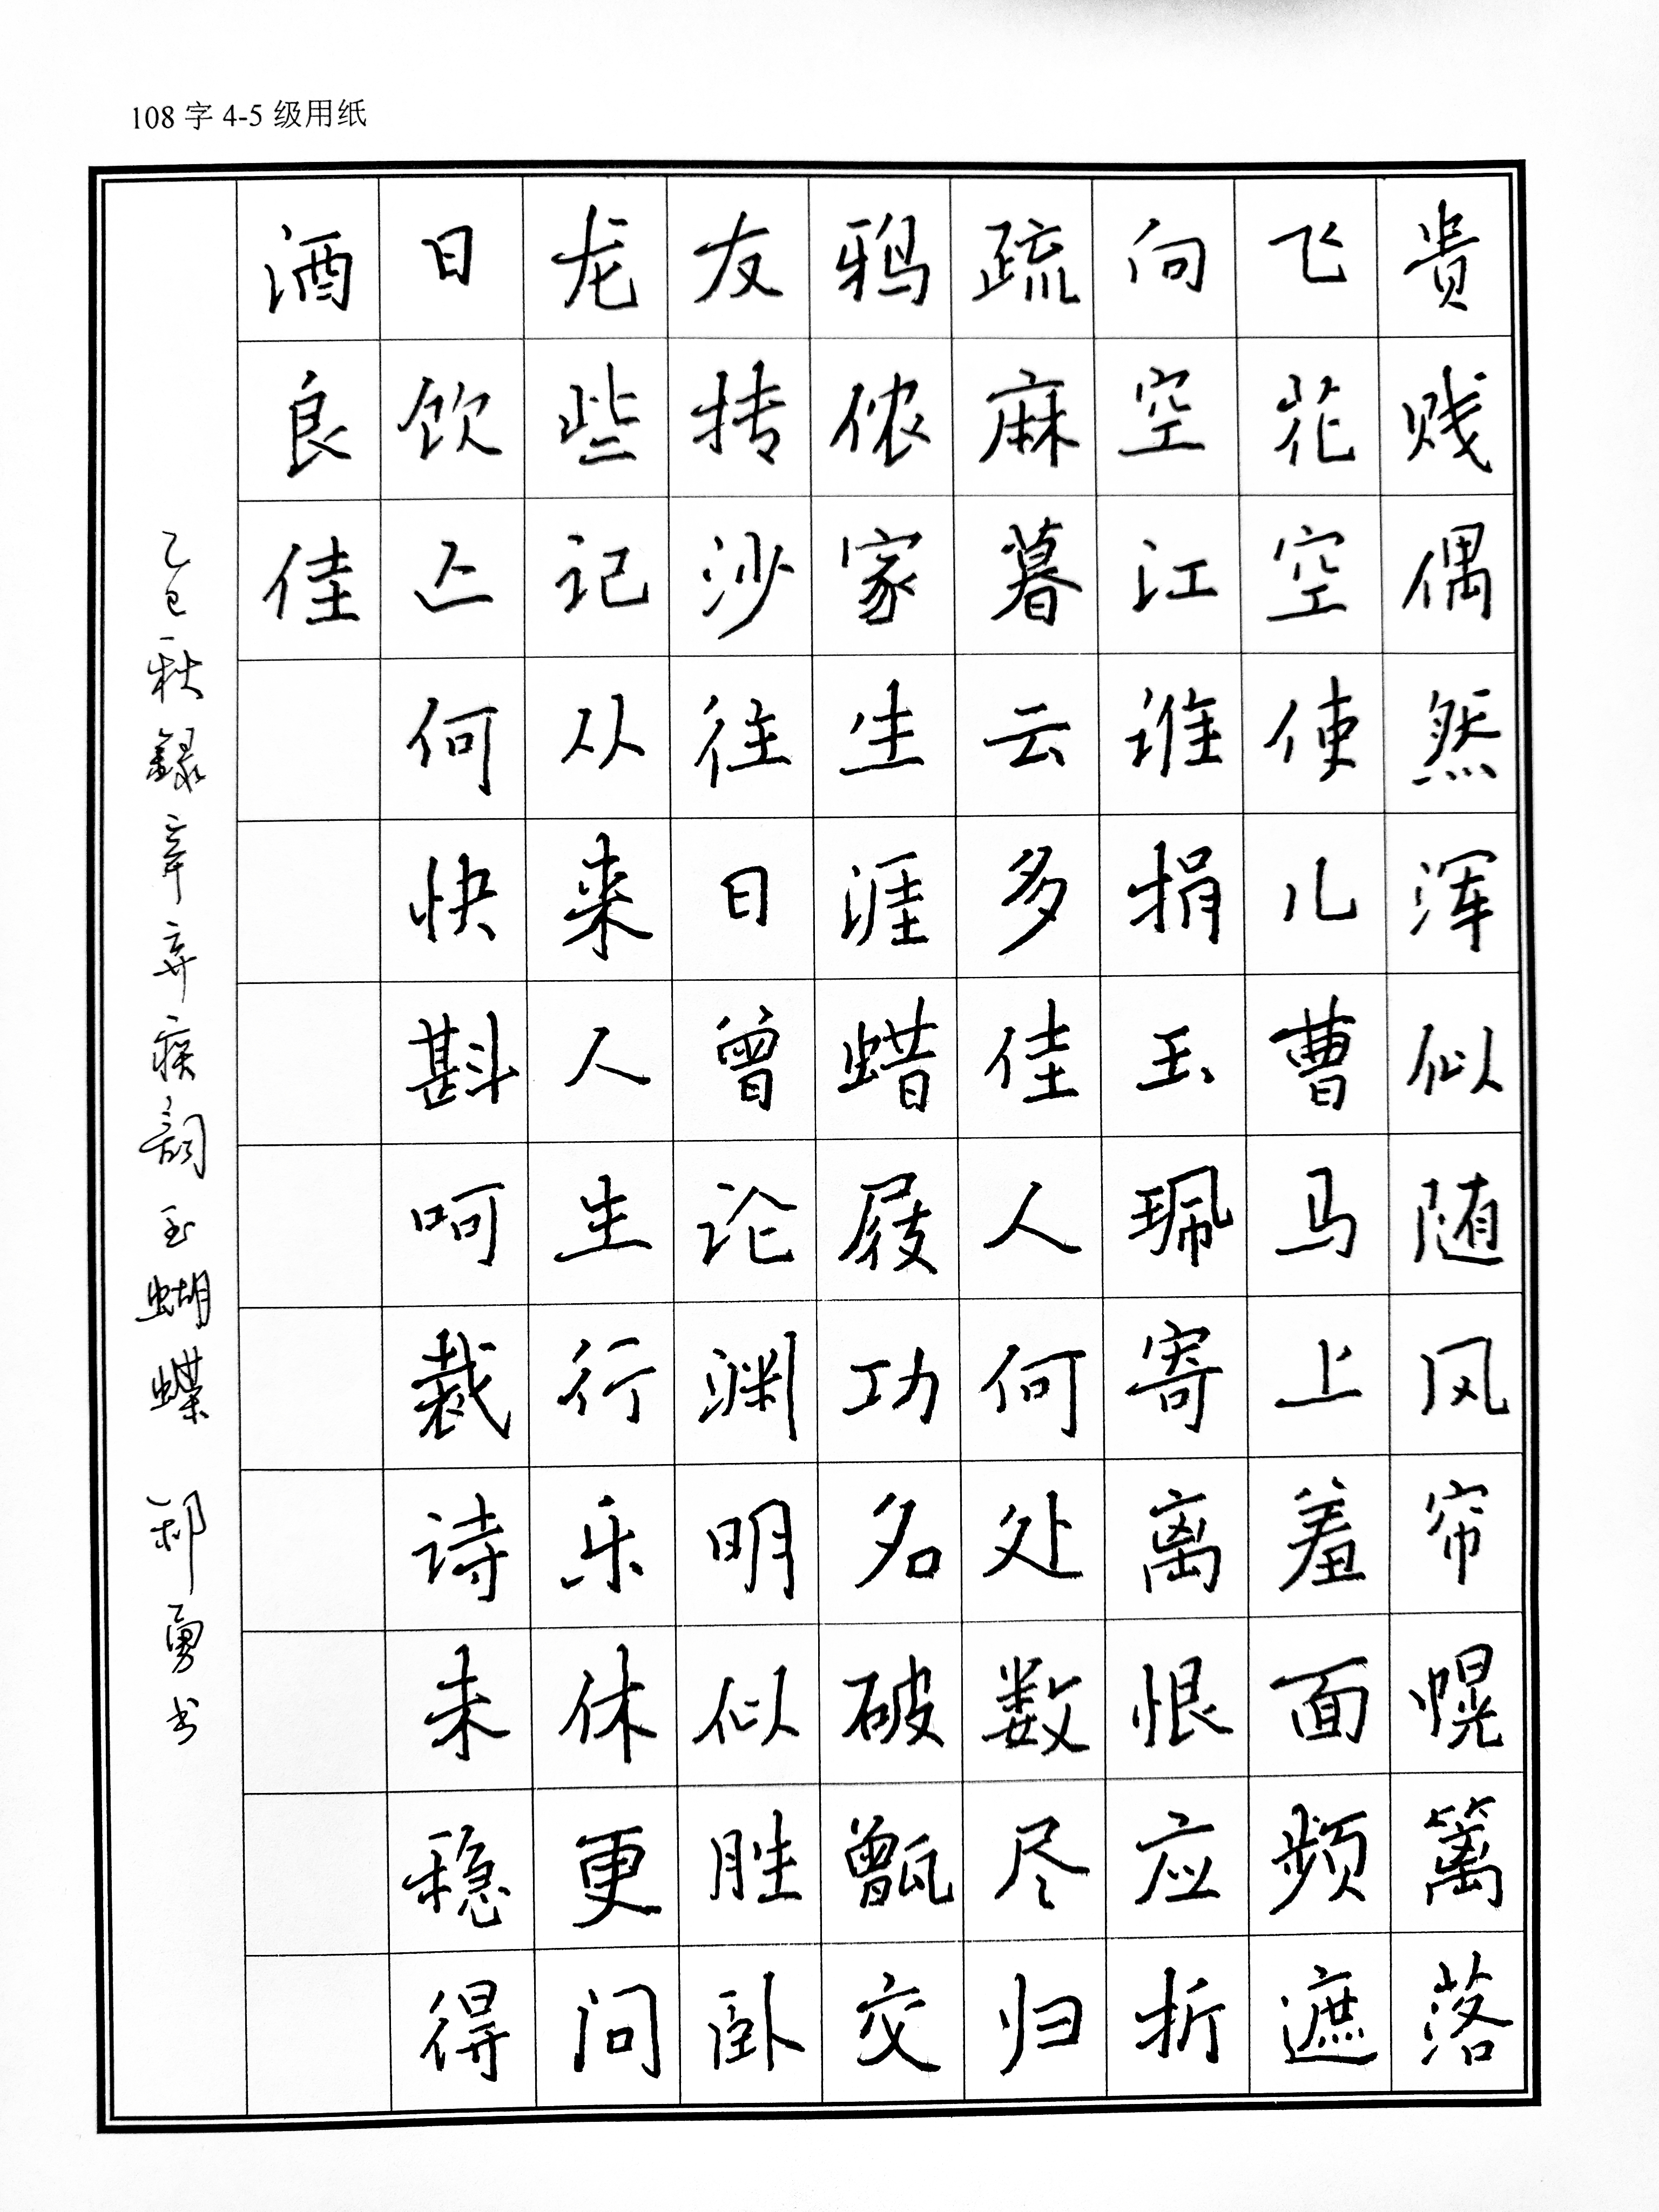 108 字 4-5 级用纸
贵贱偶然浑似随风帘幌篱落
飞花空使儿曹马上羞面频遮
向空江谁捐玉珮寄离恨应折
疏麻暮云多佳人何处数尽归
鸦侬家生涯蜡屐功名破甑交
友抟沙往日曾论渊明似胜卧
龙些记从来人生行乐休更问
日饮亡何快斟呵裁诗未稳得
酒良佳
乙巳秋録辛弃疾詞玉蝴蝶 郝勇书